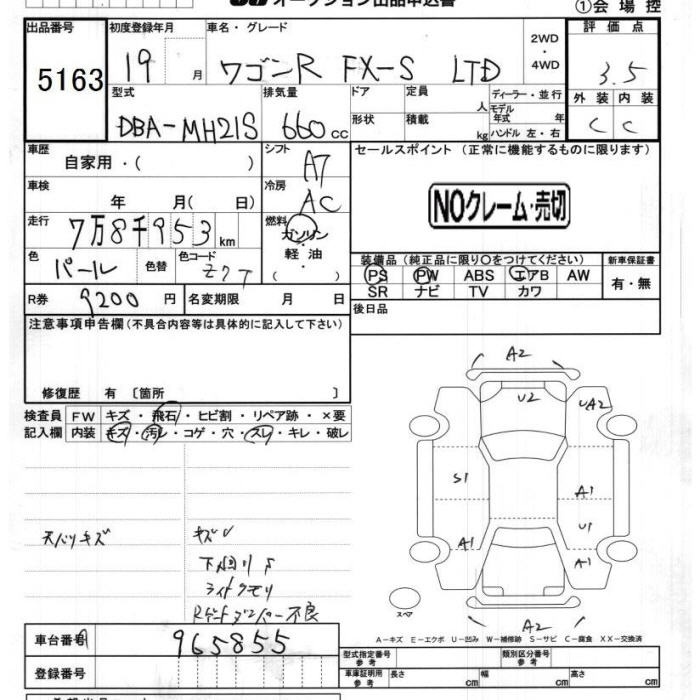 オークション出品申込書
①会場控
出品番号 初度登録年月 車名・グレード 2WD・4WD 評価点
5163 19 月 ワゴンR FX-S LTD 3.5
型式 排気量 ドア 定員 人 ディーラー・並行 外装 内装
DBA-MH21S 660 cc 形状 積載 kg モデル年式 年 ハンドル 左・右 C C
車歴 シフト セールスポイント (正常に機能するものに限ります)
自家用・( ) A7
車検 冷房
年 月( 日) AC
NOクレーム・売切
走行 燃料
7万8千953 km ガソリン・軽油・( )
色 色替 色コード 装備品 (純正品に限り〇をつけてください) 新車保証書
パール Z7T PS PW ABS エアB AW 有・無
SR ナビ TV カワ
R券 9200 円 名変期限 月 日 後日品
注意事項申告欄 (不具合内容等は具体的に記入して下さい)
修復歴 有 〔箇所 〕
検査員 FW キズ・飛石・ヒビ割・リペア跡・×要
記入欄 内装 キズ・汚レ・コゲ・穴・スレ・キレ・破レ
A2
U2 UA2
S1 A1
A1 U1
A1
天バリキズ キズU
下廻りS
ライトクモリ
Rゲートダンパー不良
スペア
A2
A-キズ E-エクボ U-凹み W-補修跡 S-サビ C-腐食 XX-交換済
車台番号 965855
型式指定番号 参考 類別区分番号 参考
登録番号 車庫証明用 参考 長さ cm 幅 cm 高さ cm